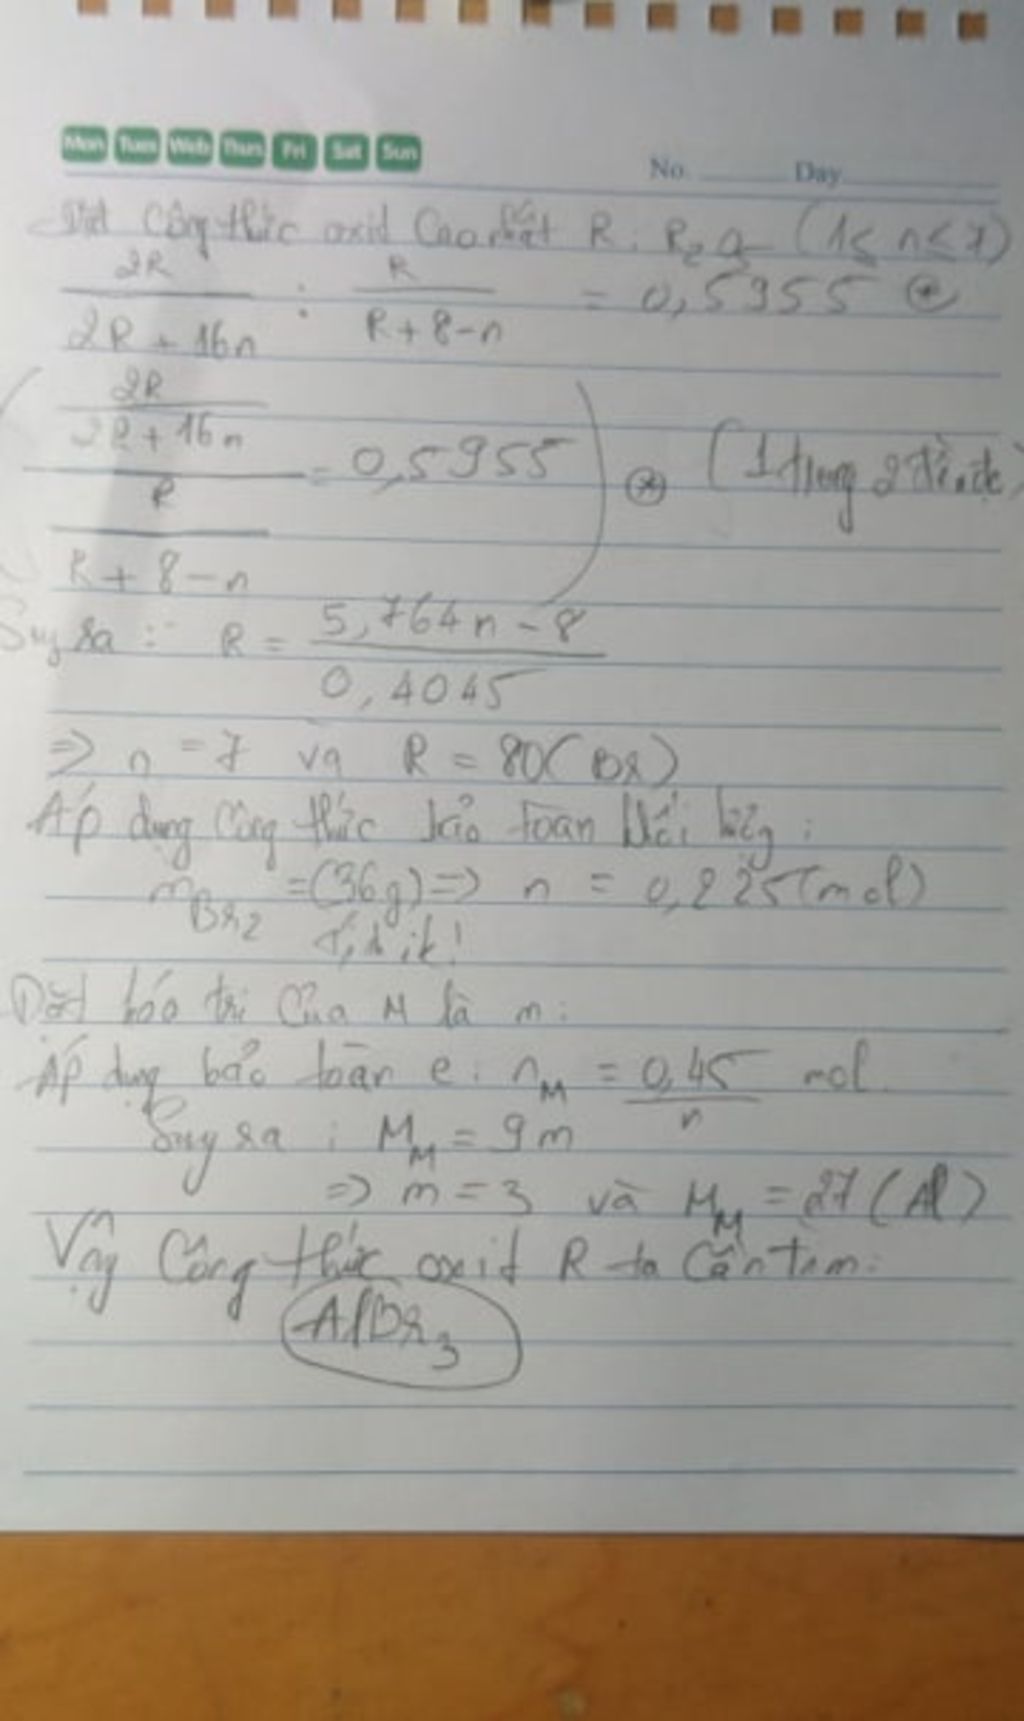 Mon Tues Web Thurs Fri Sat Sun
No. Day
Đặt Công thức oxid Cao nhất R: R₂Oₙ (1≤ n≤ 7)
2R/(2R + 16n) : R/(R + 8-n) = 0,5955 (*)
((2R/(2R + 16n))/(R/(R + 8-n)) = 0,5955) (*) (1 trong 2 đều đc)
Suy ra : R = (5,764n - 8)/0,4045
⇒ n = 7 và R = 80(Br)
Áp dụng Công thức bảo toàn khối lượng :
m_Br₂ =(36g)⇒ n = 0,225(mol)
Đặt hóa trị Của M là m:
Áp dụng bảo toàn e: n_M = 0,45/n mol
Suy ra : M_M = 9m
⇒ m = 3 và M_M = 27 (Al)
Vậy Công thức oxit R ta Cần tìm:
AlBr₃